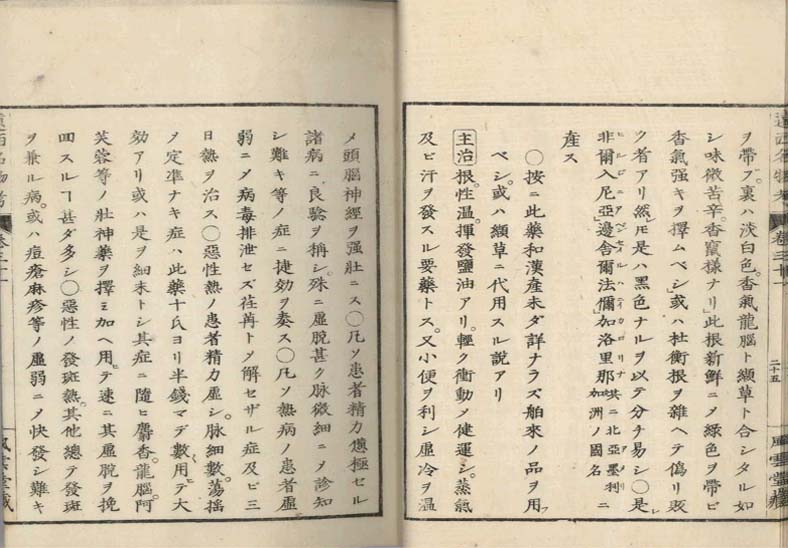 遠西名物考
卷三十一
二十五
風雲堂藏
ヲ帶ブ。裏ハ淡白色。香氣龍腦ト纈草ト合シタル如
シ味微苦辛。香竄樣ナリ」此根新鮮ニメ綠色ヲ帶ビ
香氣强キヲ擇ムベシ」或ハ杜衡根ヲ雜ヘテ僞リ販
ク者アリ然レ𪜈是ハ黑色ナルヲ以テ分チ易シ〇是レ
非爾入尼亞ヒルギニア邊舍爾法彌加洛里那カロリナ共ニ北亞墨利加洲ノ國名ニ
產ス
〇按ニ此藥和漢產未ダ詳ナラズ舶來ノ品ヲ用ユ
ベシ。或ハ纈草ニ代用スル說アリ
主治根。性溫。揮發鹽油アリ。輕ク衝動メ健運シ。蒸氣
及ビ汗ヲ發スル要藥トス。又小便ヲ利シ虛冷ヲ溫
メ頭腦神經ヲ强壯ニス〇凡ソ患者精力憊極セル
諸病ニ良驗ヲ稱シ。殊ニ虛脫甚ク脉微細ニメ診知
シ難キ等ノ症ニ捷効ヲ奏ス〇凡ソ熱病ノ患者虛
弱ニメ病毒排泄セズ荏苒トメ解セザル症及ビ三
日熱ヲ治ス〇惡性熱ノ患者精力虛シ。脉細數。蕩搖
メ定準ナキ症ハ此藥十氏ヨリ半錢マデ數用テ大
効アリ或ハ是ヲ細末トシ其症ニ隨ヒ麝香。龍腦。阿
芙蓉等ノ壯神藥ヲ擇ミ加ヘ用テ速ニ其虛脫ヲ挽
回スルヿ甚ダ多シ〇惡性ノ發斑熱。其他總テ發斑
ヲ兼ル病。或ハ痘瘡麻疹等ノ虛弱ニメ快發シ難キ
遠西名物考
卷三十一
風雲堂藏